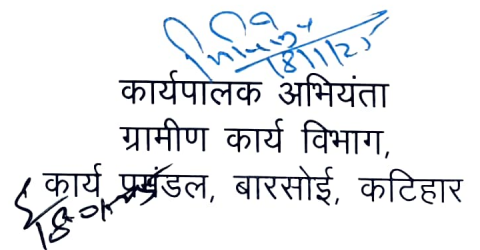 18/1/25
कार्यपालक अभियंता
ग्रामीण कार्य विभाग,
कार्य प्रमंडल, बारसोई, कटिहार